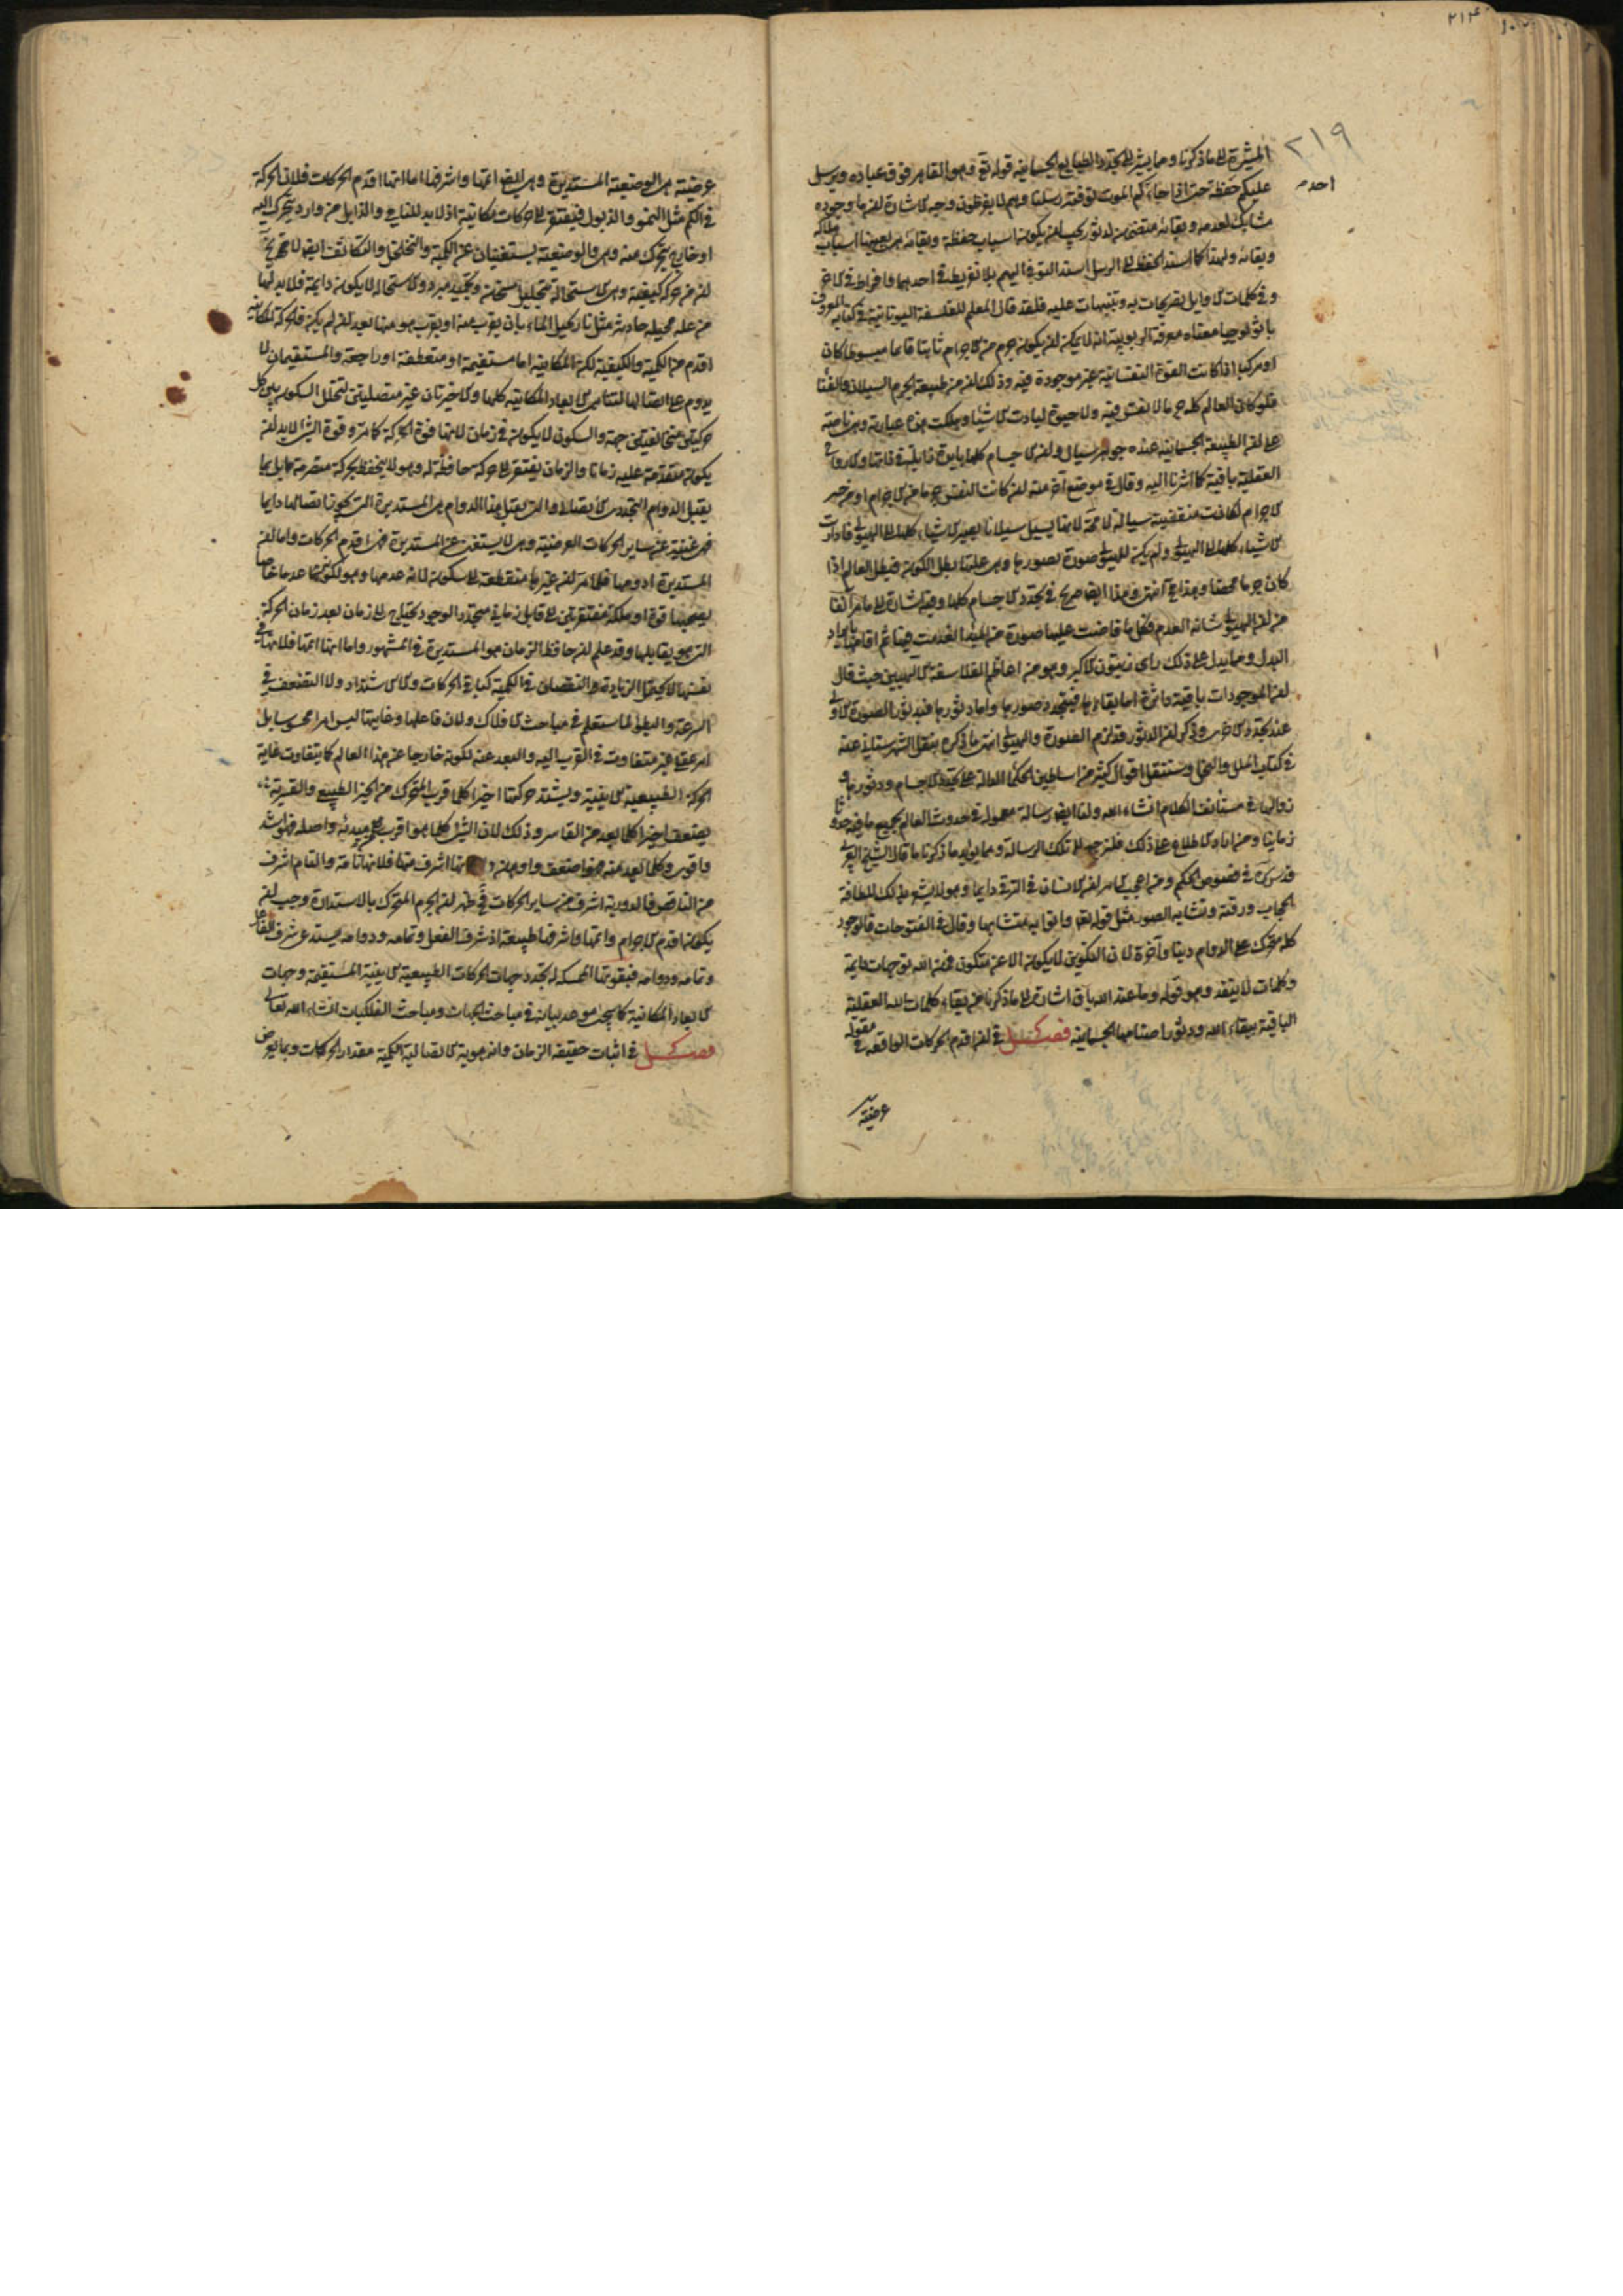 ٢١٤
٢١٩
المشيرة الى ما ذكرنا ومما يشير الى تجدد الطبايع الجسمانية قوله تع وهو القاهر فوق عباده ويرسل
احدم
عليكم حفظة حتى اذا جاء كم الموت توفته رسلنا وهم لا يفرطون وجه الاشارة ان ما وجوده
مشابك لعدمه وبقائه متضمن لدثوره يجب ان يكون اسباب حفظه وبقائه هي بعينها اسباب هلاكه
وبقائه ولهذا كما اسند الحفظ الى الرسل اسند التوفى اليهم بلا تفريط في احدهما وافراط في الاخر
وفي كلمات الاوايل تصريحات به وتنبيهات عليه فلقد قال المعلم للفلسفة اليونانية في كتابه المعروف
باثولوجيا معناه معرفة الربوبية انه لا يمكن ان يكون جرم من الاجرام ثابتا قائما مبسوطا كان
او مركبا اذا كانت القوة النفسانية غير موجودة فيه وذلك ان من طبيعة الجرم السيلان والفنا
فلو كان العالم كله جرما لا نفس فيه ولا حيوة لبادت الاشياء وهلكت هذه عبارته وهي ناصة
على ان الطبيعة الجسمانية عنده جوهر سيال وان الاجسام كلها بايدة زايلة في ذاتها والارواح
العقلية باقية كما اشرنا اليه وقال في موضع آخر منه ان كانت النفس جرما من الاجرام او من حيز
الاجرام لكانت منقضية سيالة لا محة لانها تسيل سيلانا يصير الاشياء كلها الى الهيولى فاذا ردت
الاشياء كلها الى الهيولى ولم يكن للهيولى صورة تصورها وهي علتها بطل الكون فبطل العالم اذا
كان جرما محضا وهذا مح انتهى وهذا ايضا صريح في تجدد الاجسام كلها وفيه اشارة الى ما مر آنفا
من ان الهيولى شانه العدم فكل ما فاضت عليها صورة من المبدأ انعدمت فيها ثم اقامها بايراد
البدل ومما يدل على ذلك راى زينون الاكبر وهو من اعاظم الفلاسفة الالهيين حيث قال
ان الموجودات باقية داثرة اما بقاءها فبتجدد صورها واما دثورها فبدثور الصورة الاولى
عند تجدد الاخرى وذكر ان الدثور قد لزم الصورة والهيولى انتهى ما ذكره بنقل الشهرستانى عنه
في كتاب الملل والنحل وسننقل اقوال كثير من اساطين الحكماء الدالة على تجدد الاجسام ودثورها و
زوالها في مستانف الكلام انشاء الله ولنا ايضا رسالة معمولة في حدوث العالم بجميع ما فيه حدوثا
زمانيا ومن اراد الاطلاع على ذلك فليرجع الى تلك الرسالة ومما يؤيد ما ذكرنا ما قال الشيخ العربى
قدس سره في فصوص الحكم ومن اعجب الامر ان الانسان في الترقى دايما وهو لا يشعر بذلك للطافة
الحجاب ورقته وتشابه الصور مثل قوله تع واتوا به متشابها وقال في الفتوحات فالوجود
كله متحرك على الدوام دنيا وآخرة لان التكوين لا يكون الا عن متكون فمن الله توجهات دايمة
وكلمات لا ينفد وهو قوله وما عند الله باق اشارة الى ما ذكرنا من بقاء كلمات الله العقلية
الباقية ببقاء الله ودثور اصنامها الجسمانية فصل في ان اقدم الحركات الواقعة في مقولة
عرضية
عرضية هي الوضعية المستديرة وهي ايضا اتمها واشرفها اما انها اقدم الحركات فلان الحركة
في الكم مثل النمو والذبول فيفتقر الى حركات مكانية اذ لابد للنامى والذابل من وارد يتحرك اليه
او خارج يتحرك منه وهي والوضعية يستغنيان عن الكمية والتخلخل والتكاثف ايضا لا تخ
ان من حركة كيفية وهي الاستحالة بتحليل مسخن وتجميد مبرد والاستحالة لا يكون دايمة فلابد لها
من علة محيلة حادثة مثل نار يحيل الماء بان يقرب منه او يقرب هو منها بعد ان لم يكن فالحركة المكانية
اقدم من الكمية والكيفية لكن المكانية اما مستقيمة او منعطفة او راجعة والمستقيمان لا
يدوم على اتصالها لتناهى الابعاد المكانية كلها والاخيرتان غير متصليتى لتخلل السكون بين كل
حركتين مختلفتين جهة والسكون لا يكون الا في زمان لانها قوة الحركة كما مر وقوة الشئ لابد ان
يكون متقدمة عليه زمانا والزمان يفتقر الى حركة حافظة له وهو لا ينحفظ بحركة منصرمة بل بما
يقبل الدوام التجددى الاتصالى والتى يقبل هذا الدوام هي المستديرة التى يجوز اتصالها دايما
فهى غنية عن ساير الحركات العرضية وهي لا يستغنى عن المستديرة فهى اقدم الحركات واما ان
المستديرة ادومها فلما مر ان غيرها منقطعة الى سكون لانه عدمها وهو لكونها عدما خاصا
يصحبها قوة او ملكة مفتقرتين الى قابل زمانى متجدد الوجود يحتاج الى زمان بعد زمان الحركة
التى هو يقابلها وقد علم ان حافظ الزمان هو المستديرة في المشهور واما انها اتمها فلانها في
نفسها لا يحتمل الزيادة والنقصان في الكمية كما في الحركات الاشتداد ولا التضعف في
السرعة والبطؤ لما ستعلم في مباحث الافلاك ولان فاعلها وغايتها ليس امرا محسوسا بل
امر عقلى غير متفاوت في القرب اليه والبعد عنه لكونه خارجا عن هذا العالم كما يتفاوت غاية
الحركة الطبيعية الاينية ويشتد حركتها اخيرا كلما قرب المتحرك من الحيز الطبيعى والقسرية
يضعف اخيرا كلما بعد من القاسر وذلك لان الشئ كلما هو اقرب الى مبدئه واصله فهو اشد
واقوى وكلما بعد منه فهو اضعف واوهن و انها اشرف منها فلانها تامة والتام اشرف
من الناقص فالدورية اشرف من ساير الحركات فظهر ان الجرم المتحرك بالاستدارة وجب ان
يكون اقدم الاجرام واتمها واشرفها طبيعة اذ شرف الفعل وتمامه ودوامه يستدعى شرف الفاعل
وتمامه ودوامه فبقوتها الممسكة له تجدد جهات الحركات الطبيعية الاينية المستقيمة وجهات
الابعاد المكانية كما سيجئ موعد بيانه في مباحث الجهات ومباحث الفلكيات انشاء الله تعالى
فصل في اثبات حقيقة الزمان وانه هوية الاتصالية الكمية مقدار الحركات وبما يعرض